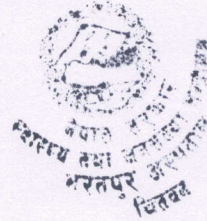 नेपाल सरकार
स्वास्थ्य तथा जनसंख्या
भरतपुर अस्पताल
चितवन